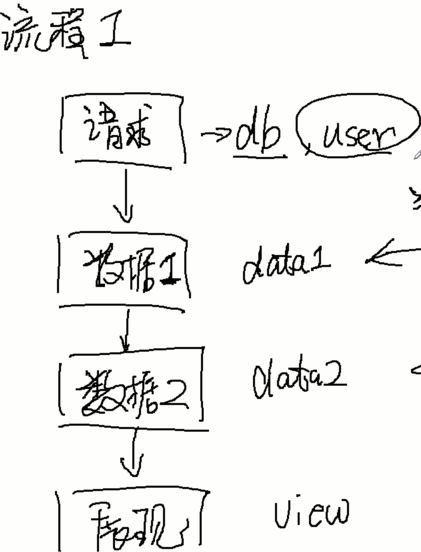 流程1
请求 →db, user
数据1 data1
数据2 data2
view